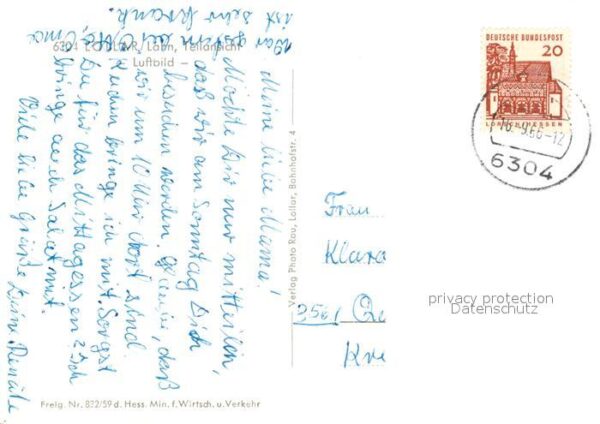 6304 LOLLAR, Lahn, Teilansicht
— Luftbild —
Meine liebe Mama!
Möchte Dir nur mitteilen,
daß wir am Sonntag Dich
besuchen werden, daß
wir um 10 Uhr dort sind.
Kuchen bringe ich mit. Sorgst
Du für das Mittagessen? Ich
bringe auch Salat mit.
Viele liebe Grüße Deine Renate
War gestern auf Oma
ist sehr krank.
Verlag Photo Rau, Lollar, Bahnhofstr. 4
Freig. Nr. 832/59 d. Hess. Min. f. Wirtsch. u. Verkehr
DEUTSCHE BUNDESPOST
20
LORSCH/HESSEN
16.-9.66-12
6304
Frau
Klara
3561
Kre
privacy protection
Datenschutz